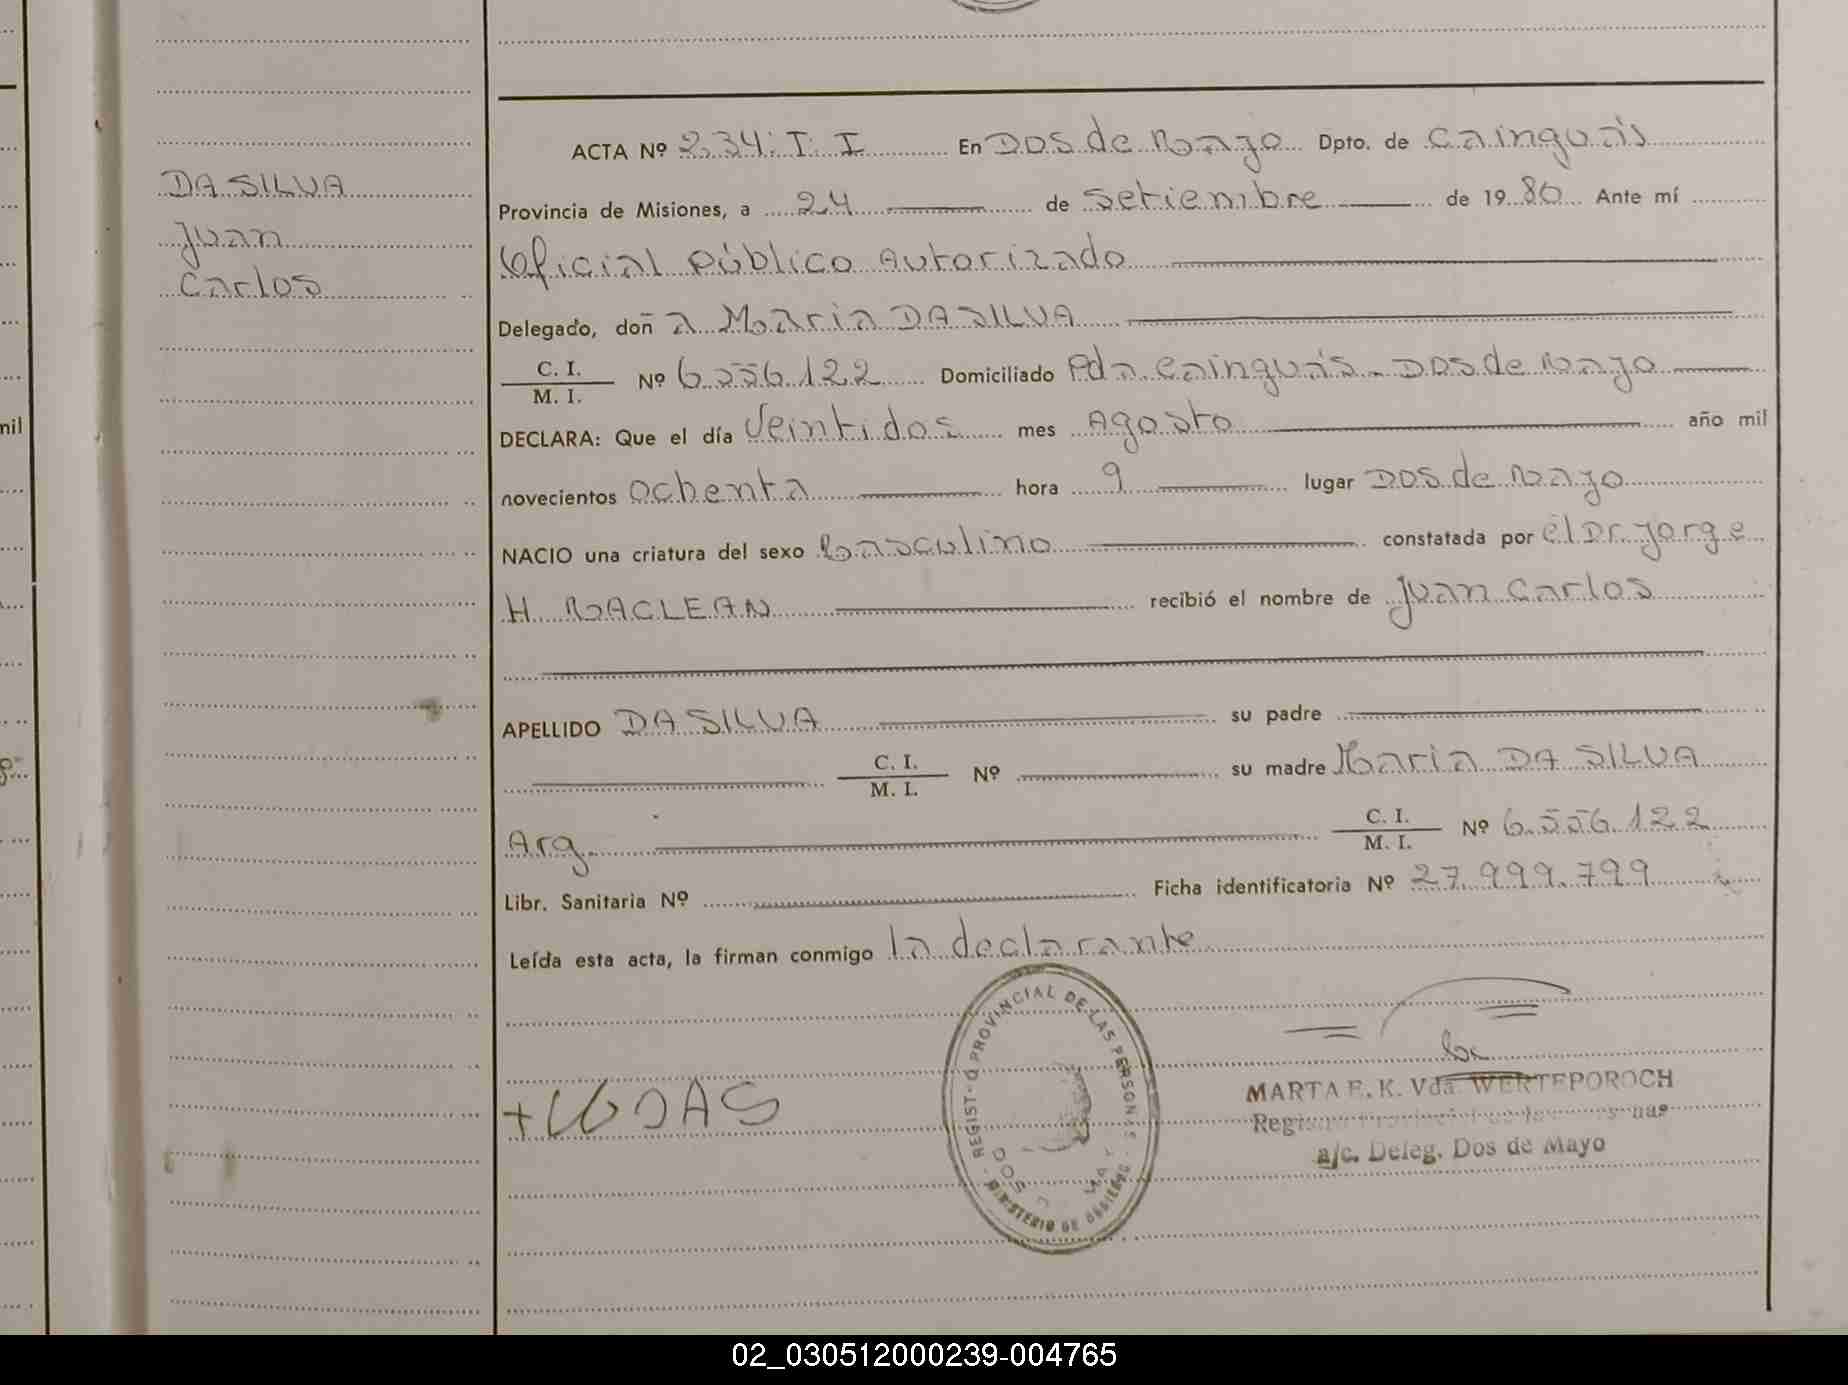 DA SILVA
Juan
Carlos
mil
ACTA Nº 234: I: I En Dos de Mayo Dpto. de Cainguás
Provincia de Misiones, a 24 de Setiembre de 1980 Ante mí
Oficial Público Autorizado
Delegado, doña Maria DA SILVA
C. I.
M. I. Nº 6.556.122 Domiciliado Pda. Cainguás - Dos de Mayo
DECLARA: Que el día Veintidos mes Agosto año mil
novecientos ochenta hora 9 lugar Dos de Mayo
NACIO una criatura del sexo Masculino constatada por el Dr. Jorge
H. MACLEAN recibió el nombre de Juan Carlos
APELLIDO DA SILVA su padre
C. I.
M. I. Nº su madre Maria DA SILVA
Arg. C. I.
M. I. Nº 6.556.122
Libr. Sanitaria Nº Ficha identificatoria Nº 27.999.799
Leída esta acta, la firman conmigo la declarante
REGISTRO PROVINCIAL DE LAS PERSONAS
MINISTERIO DE GOBIERNO
MARTA E. K. Vda. WERTEPOROCH
a/c. Deleg. Dos de Mayo
02_030512000239-004765